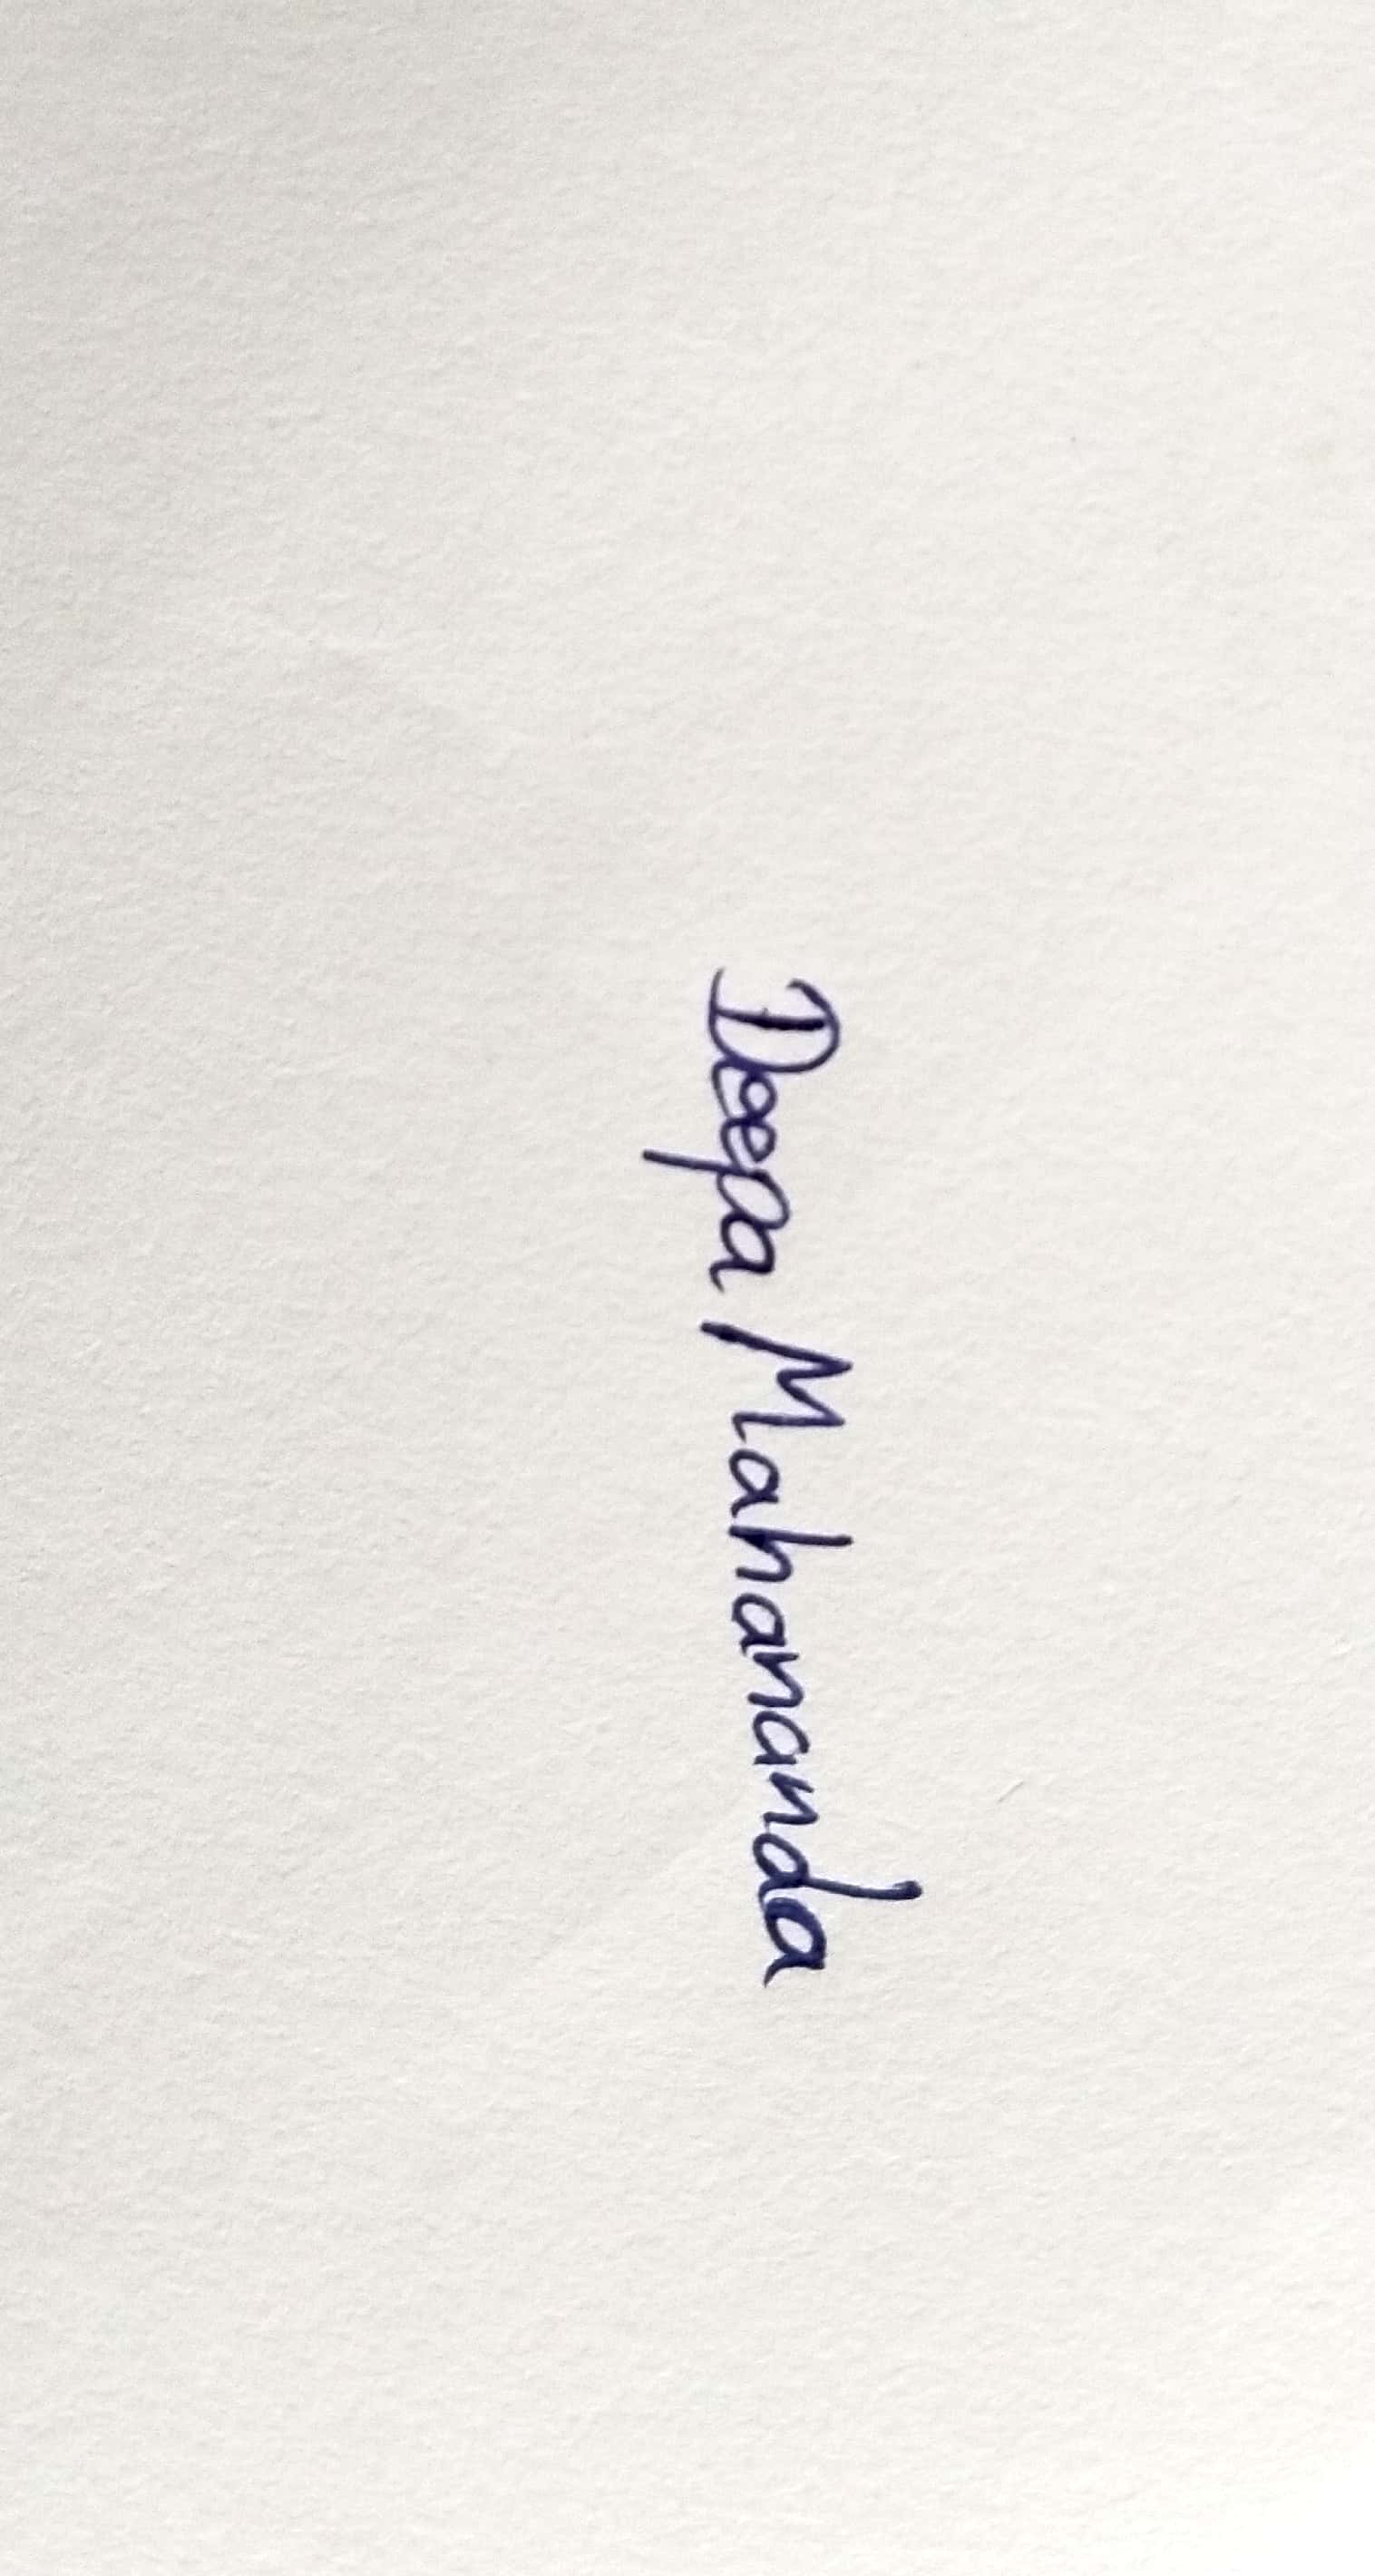 Deepa Mahananda